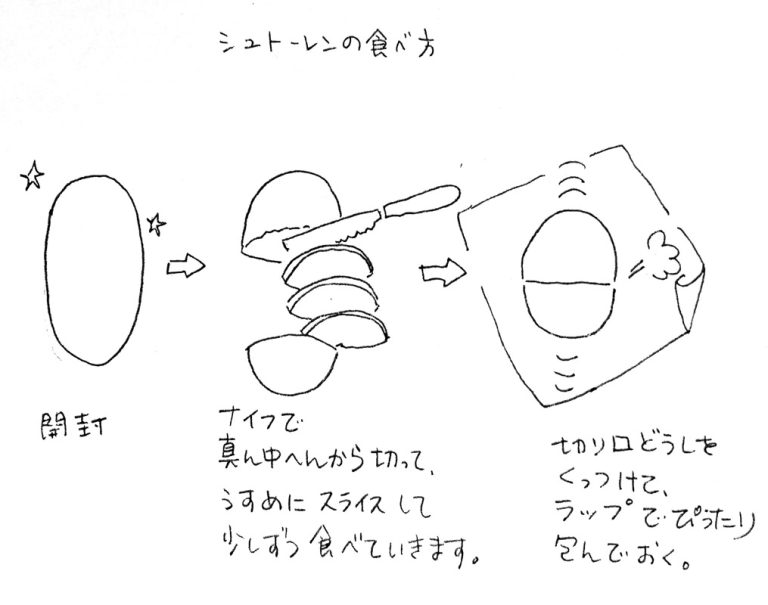 シュトーレンの食べ方
開封
ナイフで
真ん中へんから切って、
うすめに スライス して
少しずつ 食べていきます。
切り口どうしを
くっつけて、
ラップで ぴったり
包んでおく。